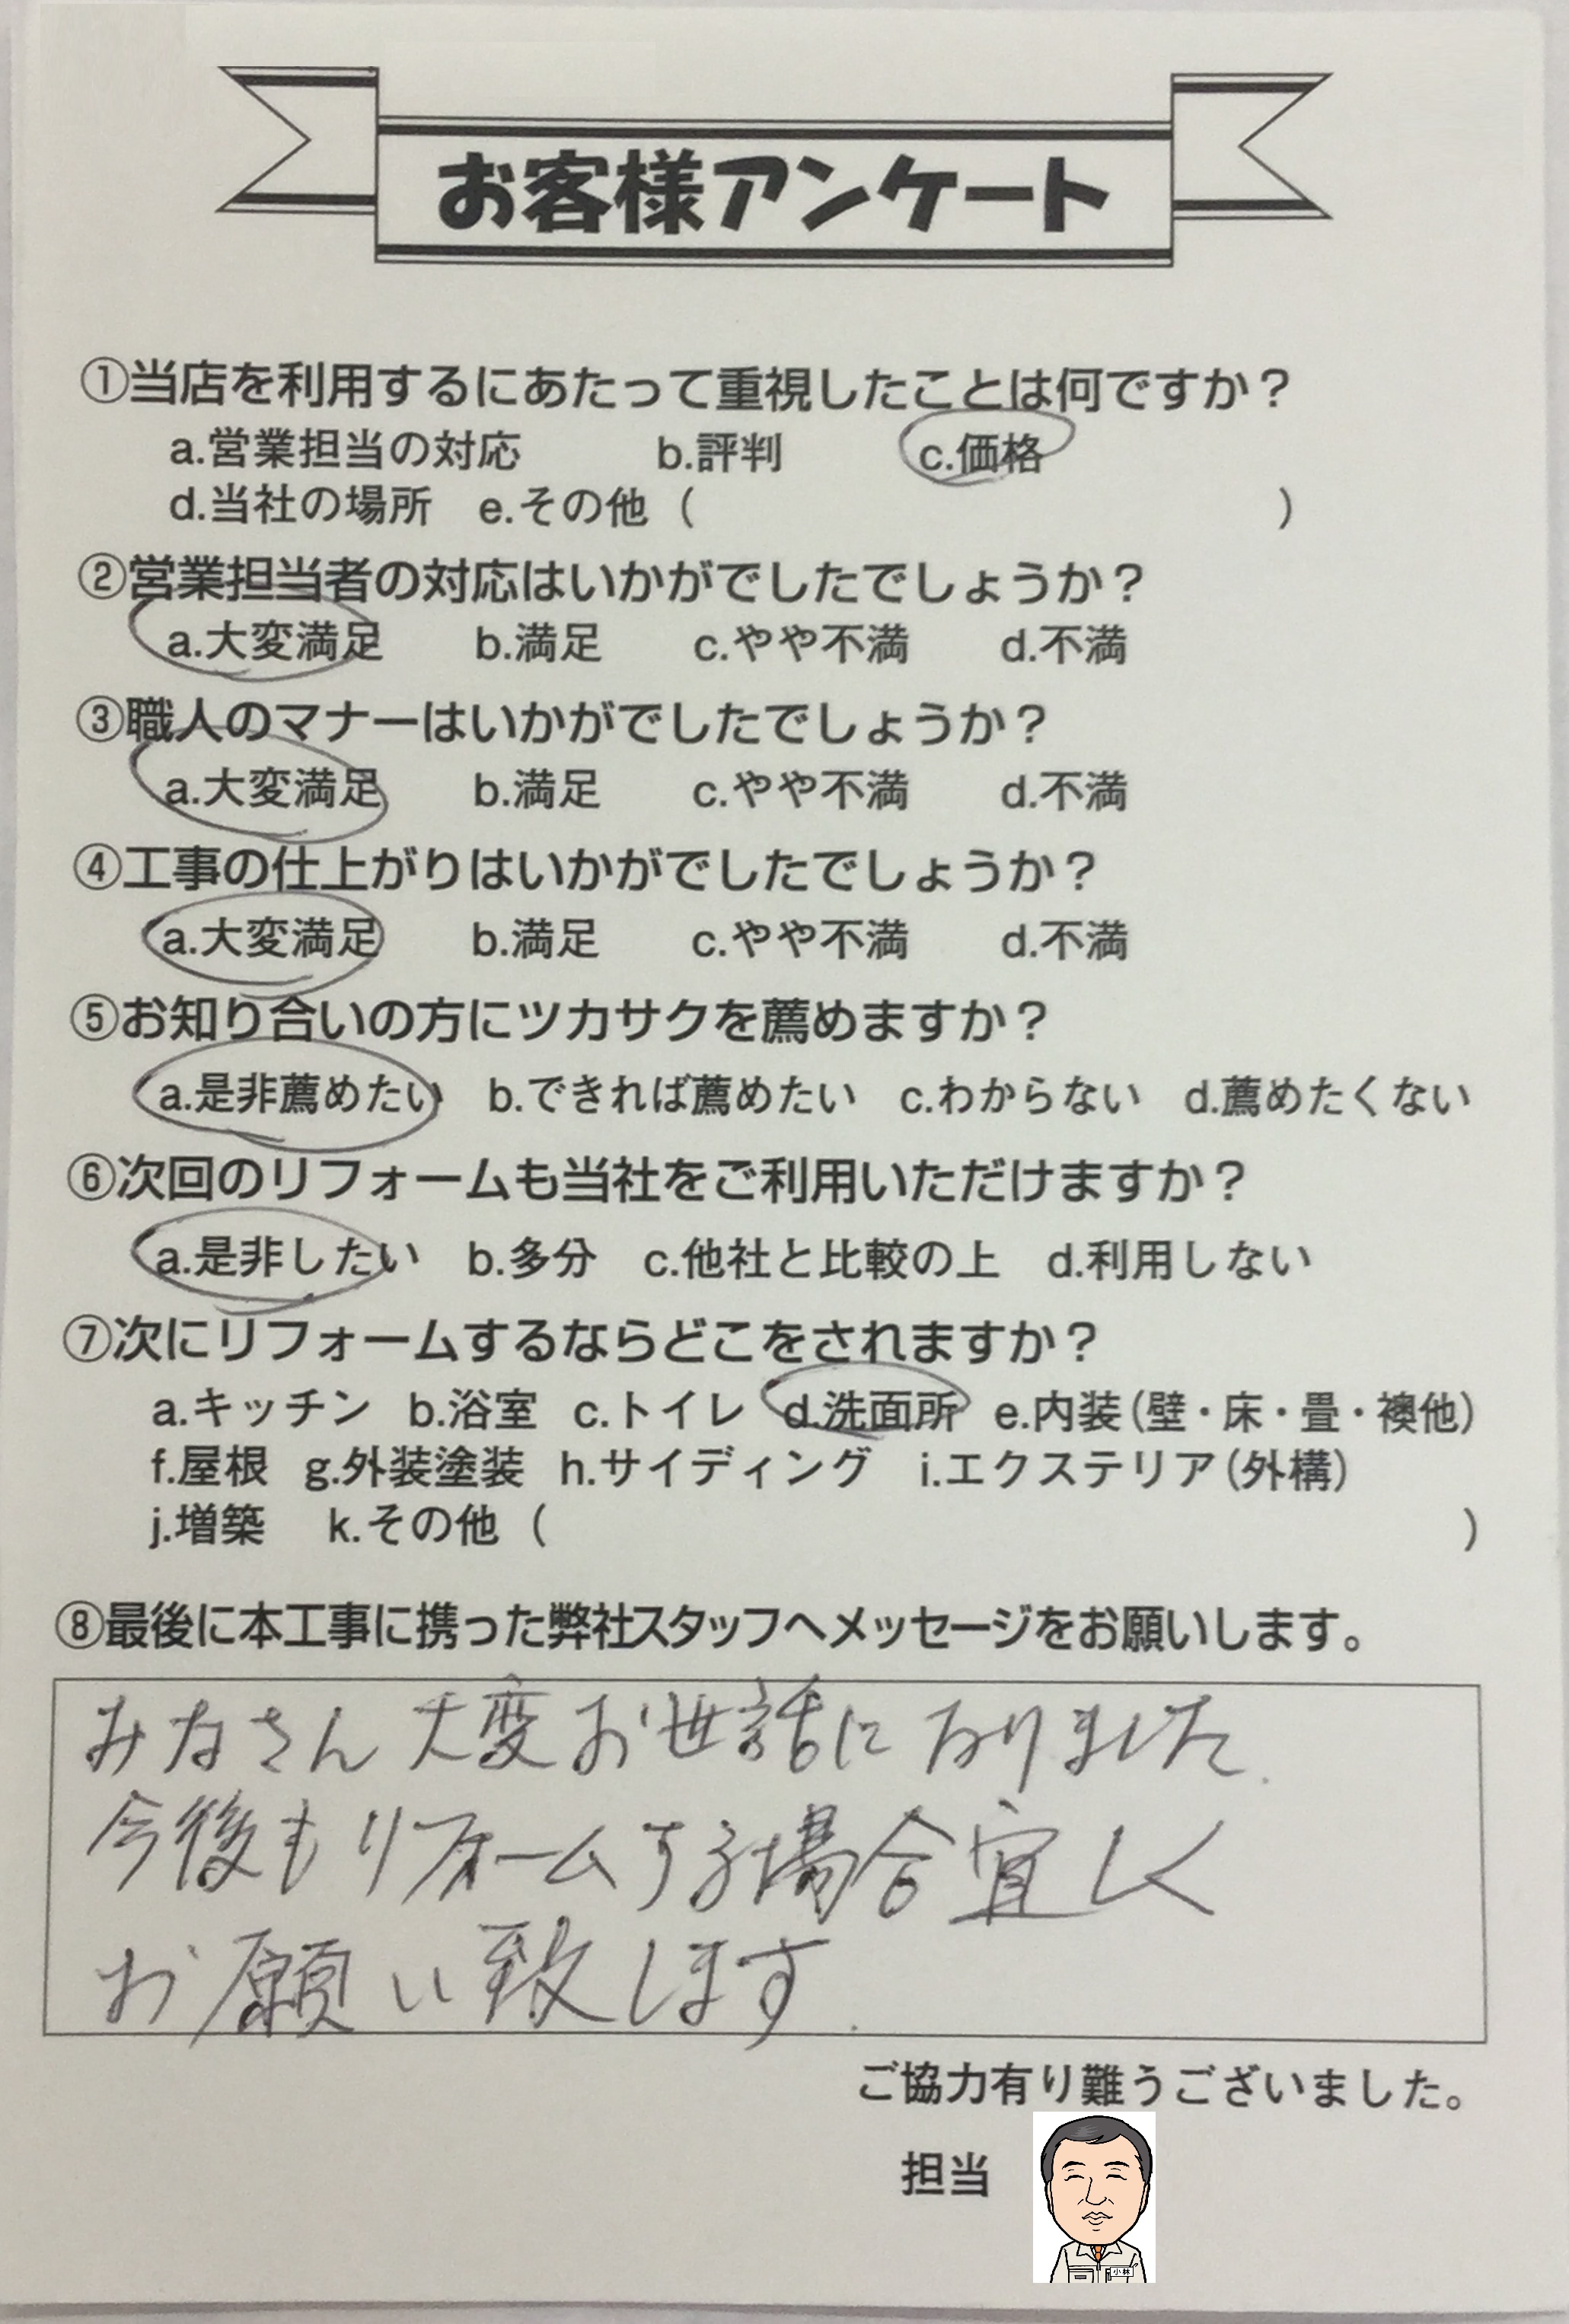 お客様アンケート
①当店を利用するにあたって重視したことは何ですか？
a.営業担当の対応 b.評判 c.価格
d.当社の場所 e.その他（ ）
②営業担当者の対応はいかがでしたでしょうか？
a.大変満足 b.満足 c.やや不満 d.不満
③職人のマナーはいかがでしたでしょうか？
a.大変満足 b.満足 c.やや不満 d.不満
④工事の仕上がりはいかがでしたでしょうか？
a.大変満足 b.満足 c.やや不満 d.不満
⑤お知り合いの方にツカサクを薦めますか？
a.是非薦めたい b.できれば薦めたい c.わからない d.薦めたくない
⑥次回のリフォームも当社をご利用いただけますか？
a.是非したい b.多分 c.他社と比較の上 d.利用しない
⑦次にリフォームするならどこをされますか？
a.キッチン b.浴室 c.トイレ d.洗面所 e.内装（壁・床・畳・襖他）
f.屋根 g.外装塗装 h.サイディング i.エクステリア（外構）
j.増築 k.その他（ ）
⑧最後に本工事に携った弊社スタッフへメッセージをお願いします。
みなさん大変お世話になりました.
今後もリフォームする場合宜しく
お願い致します.
ご協力有り難うございました。
担当
小林